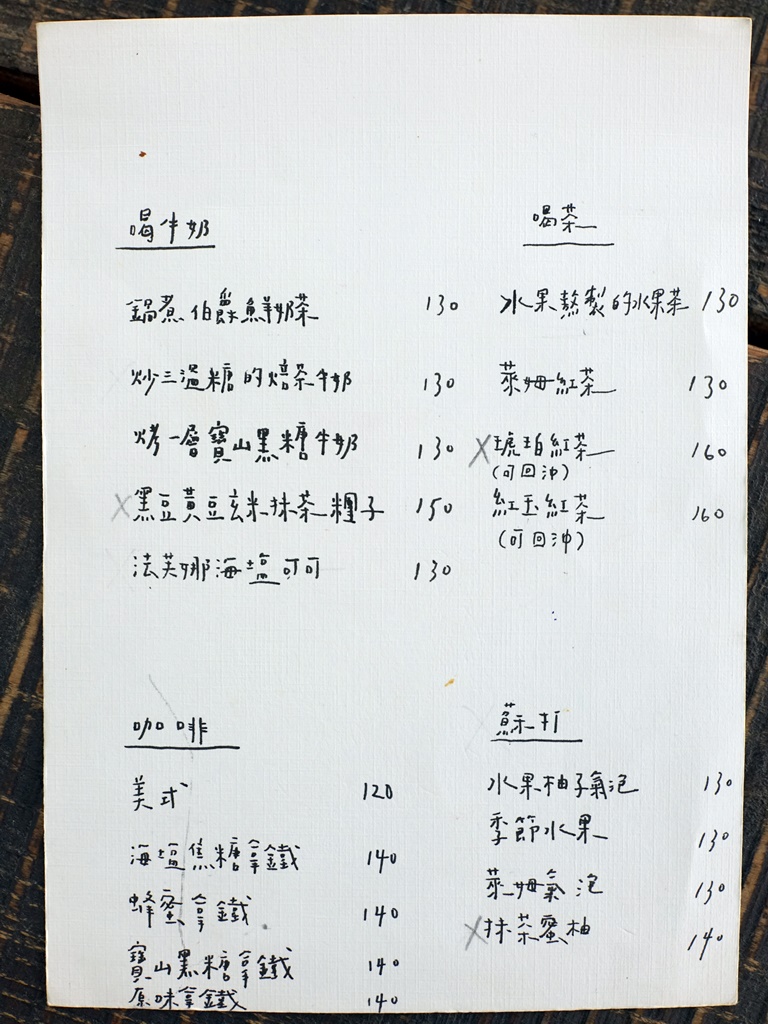 喝牛奶
鍋煮伯爵鮮奶茶 130
炒三溫糖的焙茶牛奶 130
烤一層寶山黑糖牛奶 130
黑豆黃豆玄米抹茶糰子 150
法芙娜海塩可可 130
喝茶
水果熬製的水果茶 130
萊姆紅茶 130
琥珀紅茶 160
(可回沖)
紅玉紅茶 160
(可回沖)
咖啡
美式 120
海塩焦糖拿鐵 140
蜂蜜拿鐵 140
寶山黑糖拿鐵 140
原味拿鐵 140
蘇打
水果柚子氣泡 130
季節水果 130
萊姆氣泡 130
抹茶蜜柚 140